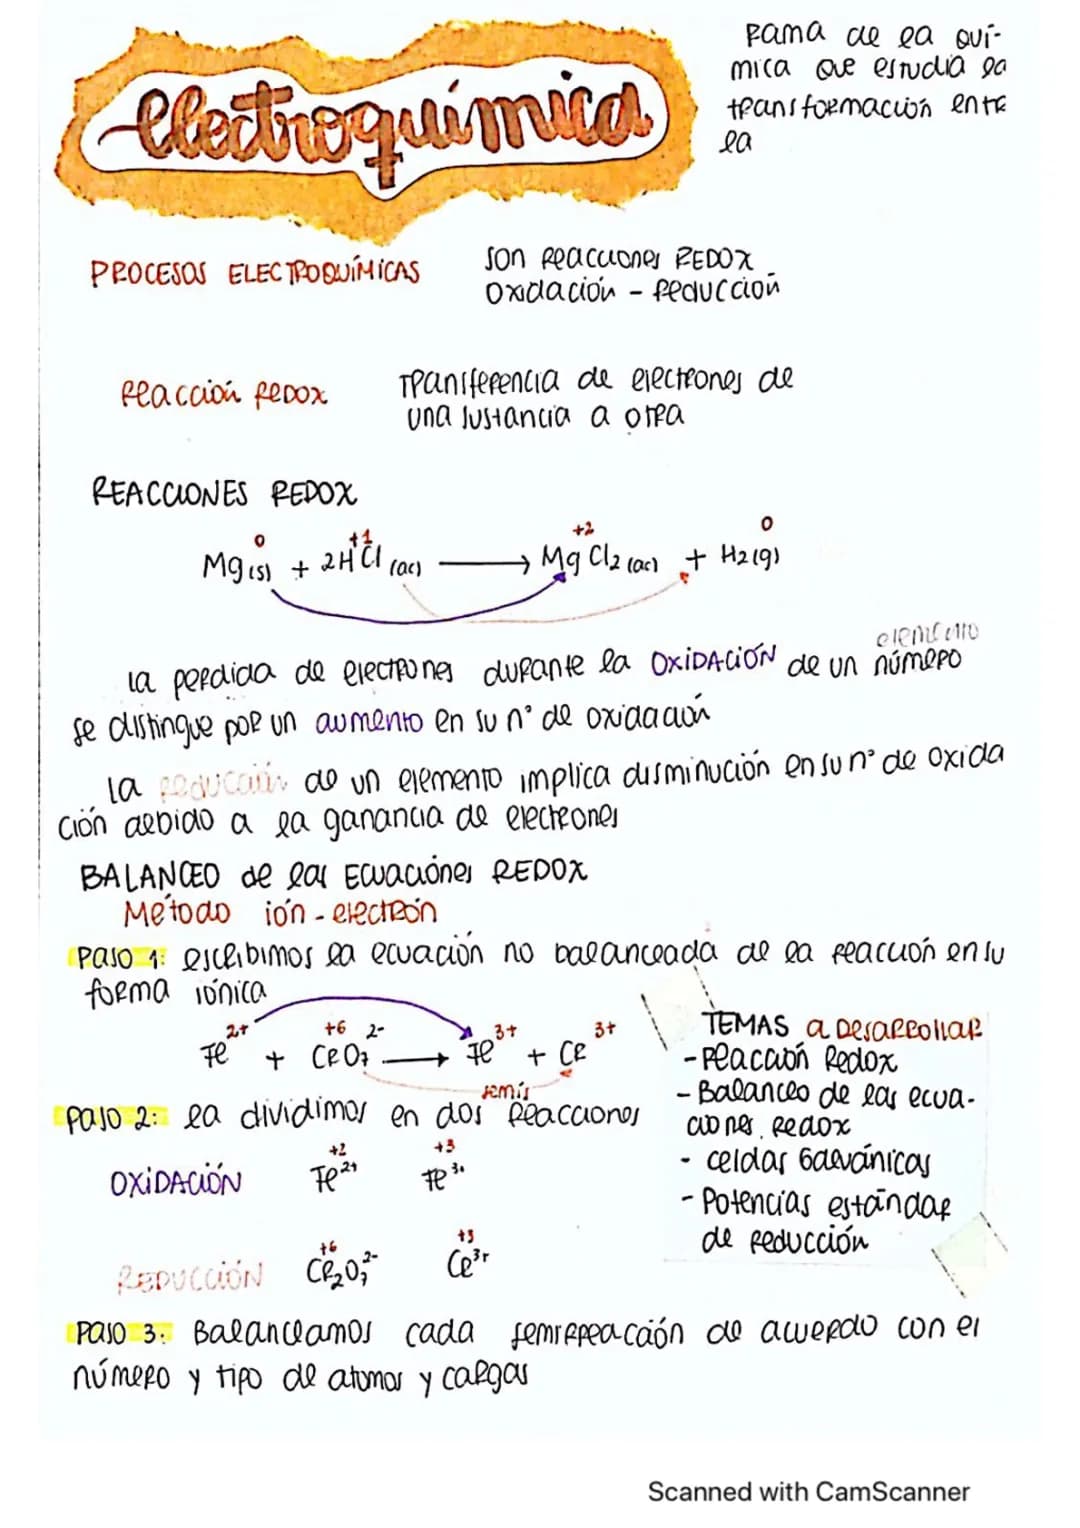 electroquímica
Rama de la quí-
mica que estudia la
transformación entre
la
PROCESOS ELECTROQUÍMICAS
son reacciones REDOX
Oxidación - Reducción
Reacción Redox
Transferencia de electrones de
una sustancia a otra
REACCIONES REDOX
0 +1 +2 0
Mg(s) + 2HCl (ac) ⟶ MgCl2 (ac) + H2(g)
elemento
la perdida de electrones durante la OXIDACIÓN de un número
se distingue por un aumento en su n° de oxidación
la reducción de un elemento implica disminución en su n° de oxida
ción debido a la ganancia de electrones
BALANCEO de las Ecuaciónes REDOX
Método ión - electrón
Paso 1: escribimos la ecuación no balanceada de la reacción en su
forma iónica
2+ +6 2- 3+ 3+
Fe + CrO7 ⟶ Fe + Cr
semis
Paso 2: la dividimos en dos Reacciones
+2 +3
OXIDACIÓN Fe2+ Fe3+
+6 +3
REDUCCIÓN Cr2O7 2- Cr3+
TEMAS a Desarrollar
- Reacción Redox
- Balanceo de las ecua-
ciones. Redox
- celdas Galvánicas
- Potencias estándar
de reducción
Paso 3: Balanceamos cada semirreacción de acuerdo con el
número y tipo de atomos y cargas
Scanned with CamScanner